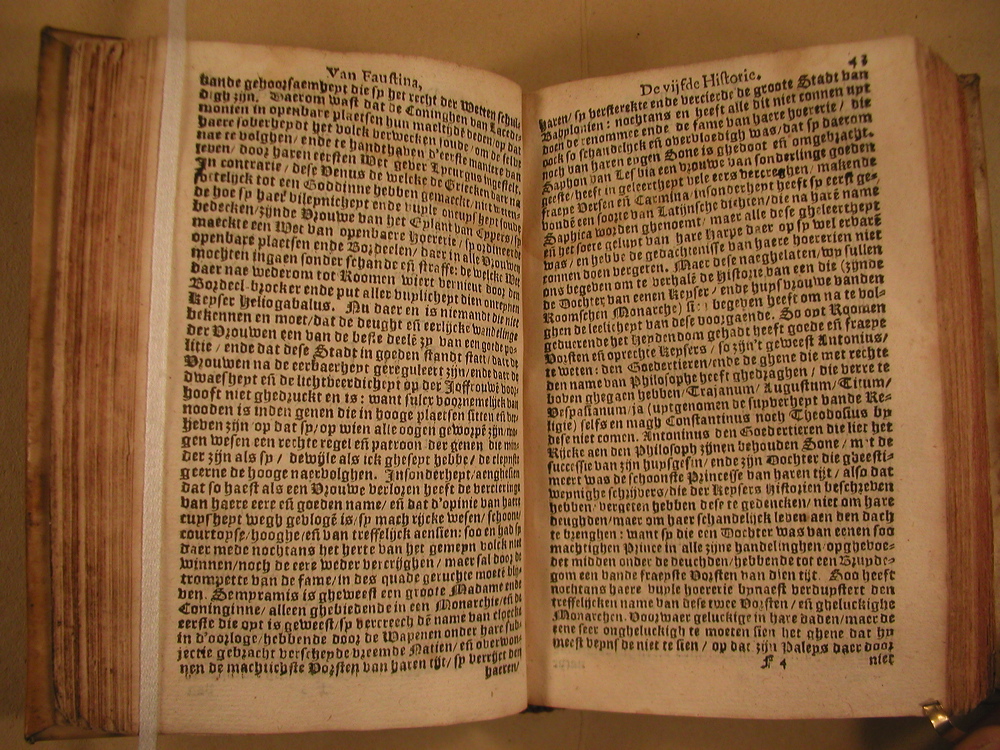 Van Faustina,
vande gehoorsaemheyt die sy het recht der Wetten schul-
digh zijn. Daerom wast dat de Coninghen van Lacede-
monien in openbare plaetsen hun maeltijdt deden/op dat
haere soberheydt het volck verwecken soude/om de selve
nae te volghen/ ende te handthaven d'eerste maniere van
leven/ door haren eersten Wet gever Lycurgus ingestelt.
In contrarie/ dese Venus de welcke de Griecken daer na
sottelijck tot een Goddinne hebben gemaeckt/ niet weten-
de hoe sy haer vilepnicheyt ende vuyle oncuysheyt soude
bedecken/zijnde Vrouwe van het Eylant van Cypers/sy
maeckte een Wet van openbaere Hoererie / sy ordineerde
openbare plaetsen ende Bordeelen/ daer in alle Vrouwen
mochten ingaen sonder schande eñ straffe: de welcke Wet
daer nae wederom tot Roomen wiert vernieut door den
Bordeel-brocker ende put aller vuylicheyt dien onreynen
Keyser Heliogabalus. Nu daer en is niemandt die niet
bekennen en moet/dat de deught eñ eerlijcke wandelinge
der Vrouwen een van de beste deelē zy van een goede po-
litie / ende dat dese Stadt in goeden standt staet/ daer de
Vrouwen na de eerbaerheyt gereguleert zijn/ende daer de
dwaesheyt eñ de lichtveerdicheyt op der Joffrouwē voor-
hooft niet ghedruckt en is : want sulcx voornemelijck van
nooden is inden genen die in hooge plaetsen sitten eñ ver-
heven zijn/ op dat sy/op wien alle oogen geworpē zijn/mo-
gen wesen een rechte regel eñ patroon der genen die min-
der zijn als sy / dewijle als ick gheseyt hebbe/ de cleynste
geerne de hooge naervolghen. Insonderheyt/aenghesien
dat so haest als een Vrouwe verloren heeft de vercieringe
van haere eere eñ goeden name/ eñ dat d'opinie van haer
cuysheyt wegh gevlogē is/sy mach rijcke wesen/schoone/
courtoyse/hooghe/eñ van treffelijck aensien: soo en had sy
daer mede nochtans het herte van het gemeyn volck niet
winnen/noch de eere weder vercrijghen / maer sal door de
trompette van de fame/in des quade geruchte moetē bly-
ven. Semyramis is gheweest een groote Madame ende
Coninginne/ alleen ghebiedende in een Monarchie/eñ de
eerste die opt is geweest/sy vercreech dē name van cloeck
in d'oorloge/hebbende door de Wapenen onder hare sub-
jectie gebracht verscheyde vreemde Natien/ eñ overwon-
nen de machtichste Vorsten van haren tijt/ sy verrijct den
haeren/
De vijfde Historie. 43
haren/ sy versterckte ende vercierde de groote Stadt van
Babylonien : nochtans en heeft alle dit niet connen uyt
doen de renommee ende de fame van haere hoererie / die
oock so schandelijck eñ overvloedigh was/dat sy daerom
noch van haren eygen Sone is ghedoot eñ omgebracht.
Saphon van Lesbia een vrouwe van sonderlinge goeden
geeste/heeft in geleertheyt vele eers vercreghen/ makende
fraeye Versen eñ Carmina / insonderheyt heeft sy eerst ge-
vondē een soorte van Latijnsche dichten/die na harē name
Saphica worden ghenoemt/ maer alle dese gheleertheyt
eñ het soete geluyt van hare Harpe daer op sy wel ervarē
was / en hebbē de gedachtenisse van haere hoererien niet
connen doen vergeten. Maer dese naeghelaten/wy sullen
ons begeven om te verhalē de Historie van een die (zijnde
de Dochter van eenen Keyser / ende huysvrouwe vanden
Roomschen Monarche) sich begeven heeft om na te vol-
ghen de leelicheyt van dese voorgaende. So opt Roomen
geduerende het Heydendom gehadt heeft goede eñ fraeye
Vorsten eñ oprechte Keysers / so zijn't geweest Antonius/
te weten : den Goedertieren/ende de ghene die met rechte
den name van Philosophe heeft ghedraghen / die verre te
boven ghegaen hebben/Trajanum/ Augustum/Titum/
Vespasianum/ja (uytgenomen de supverheyt vande Re-
ligie) selfs en magh Constantinus noch Theodosius by
dese niet comen. Antoninus den Goedertieren die liet het
Rijcke aen den Philosoph zijnen behouden Sone / met de
successie van zijn huysgesin/ ende zijn Dochter die gheesti-
meert was de schoonste Princesse van haren tijt / also dat
weynighe schrijvers/die der Keysers Historien beschreven
hebben/ vergeten hebben dese te gedencken/ niet om hare
deughden/maer om haer schandelijck leven aen den dach
te brenghen : want sy die een Dochter was van eenen soo
machtighen Prince in alle zijne handelinghen/ opghevoe-
det midden onder de deuchden/hebbende tot een Bruyde-
gom een vande fraeyste Vorsten van dien tijt. Soo heeft
nochtans haere vuyle hoererie bynaest verduystert den
treffelijcken name van dese twee Vorsten / eñ gheluckighe
Monarchen. Voorwaer geluckige in hare daden/maer de
eene seer ongheluckigh te moeten sien het ghene dat hy
meest veyns de niet te sien / op dat zijn Paleys daer door
F 4 niet